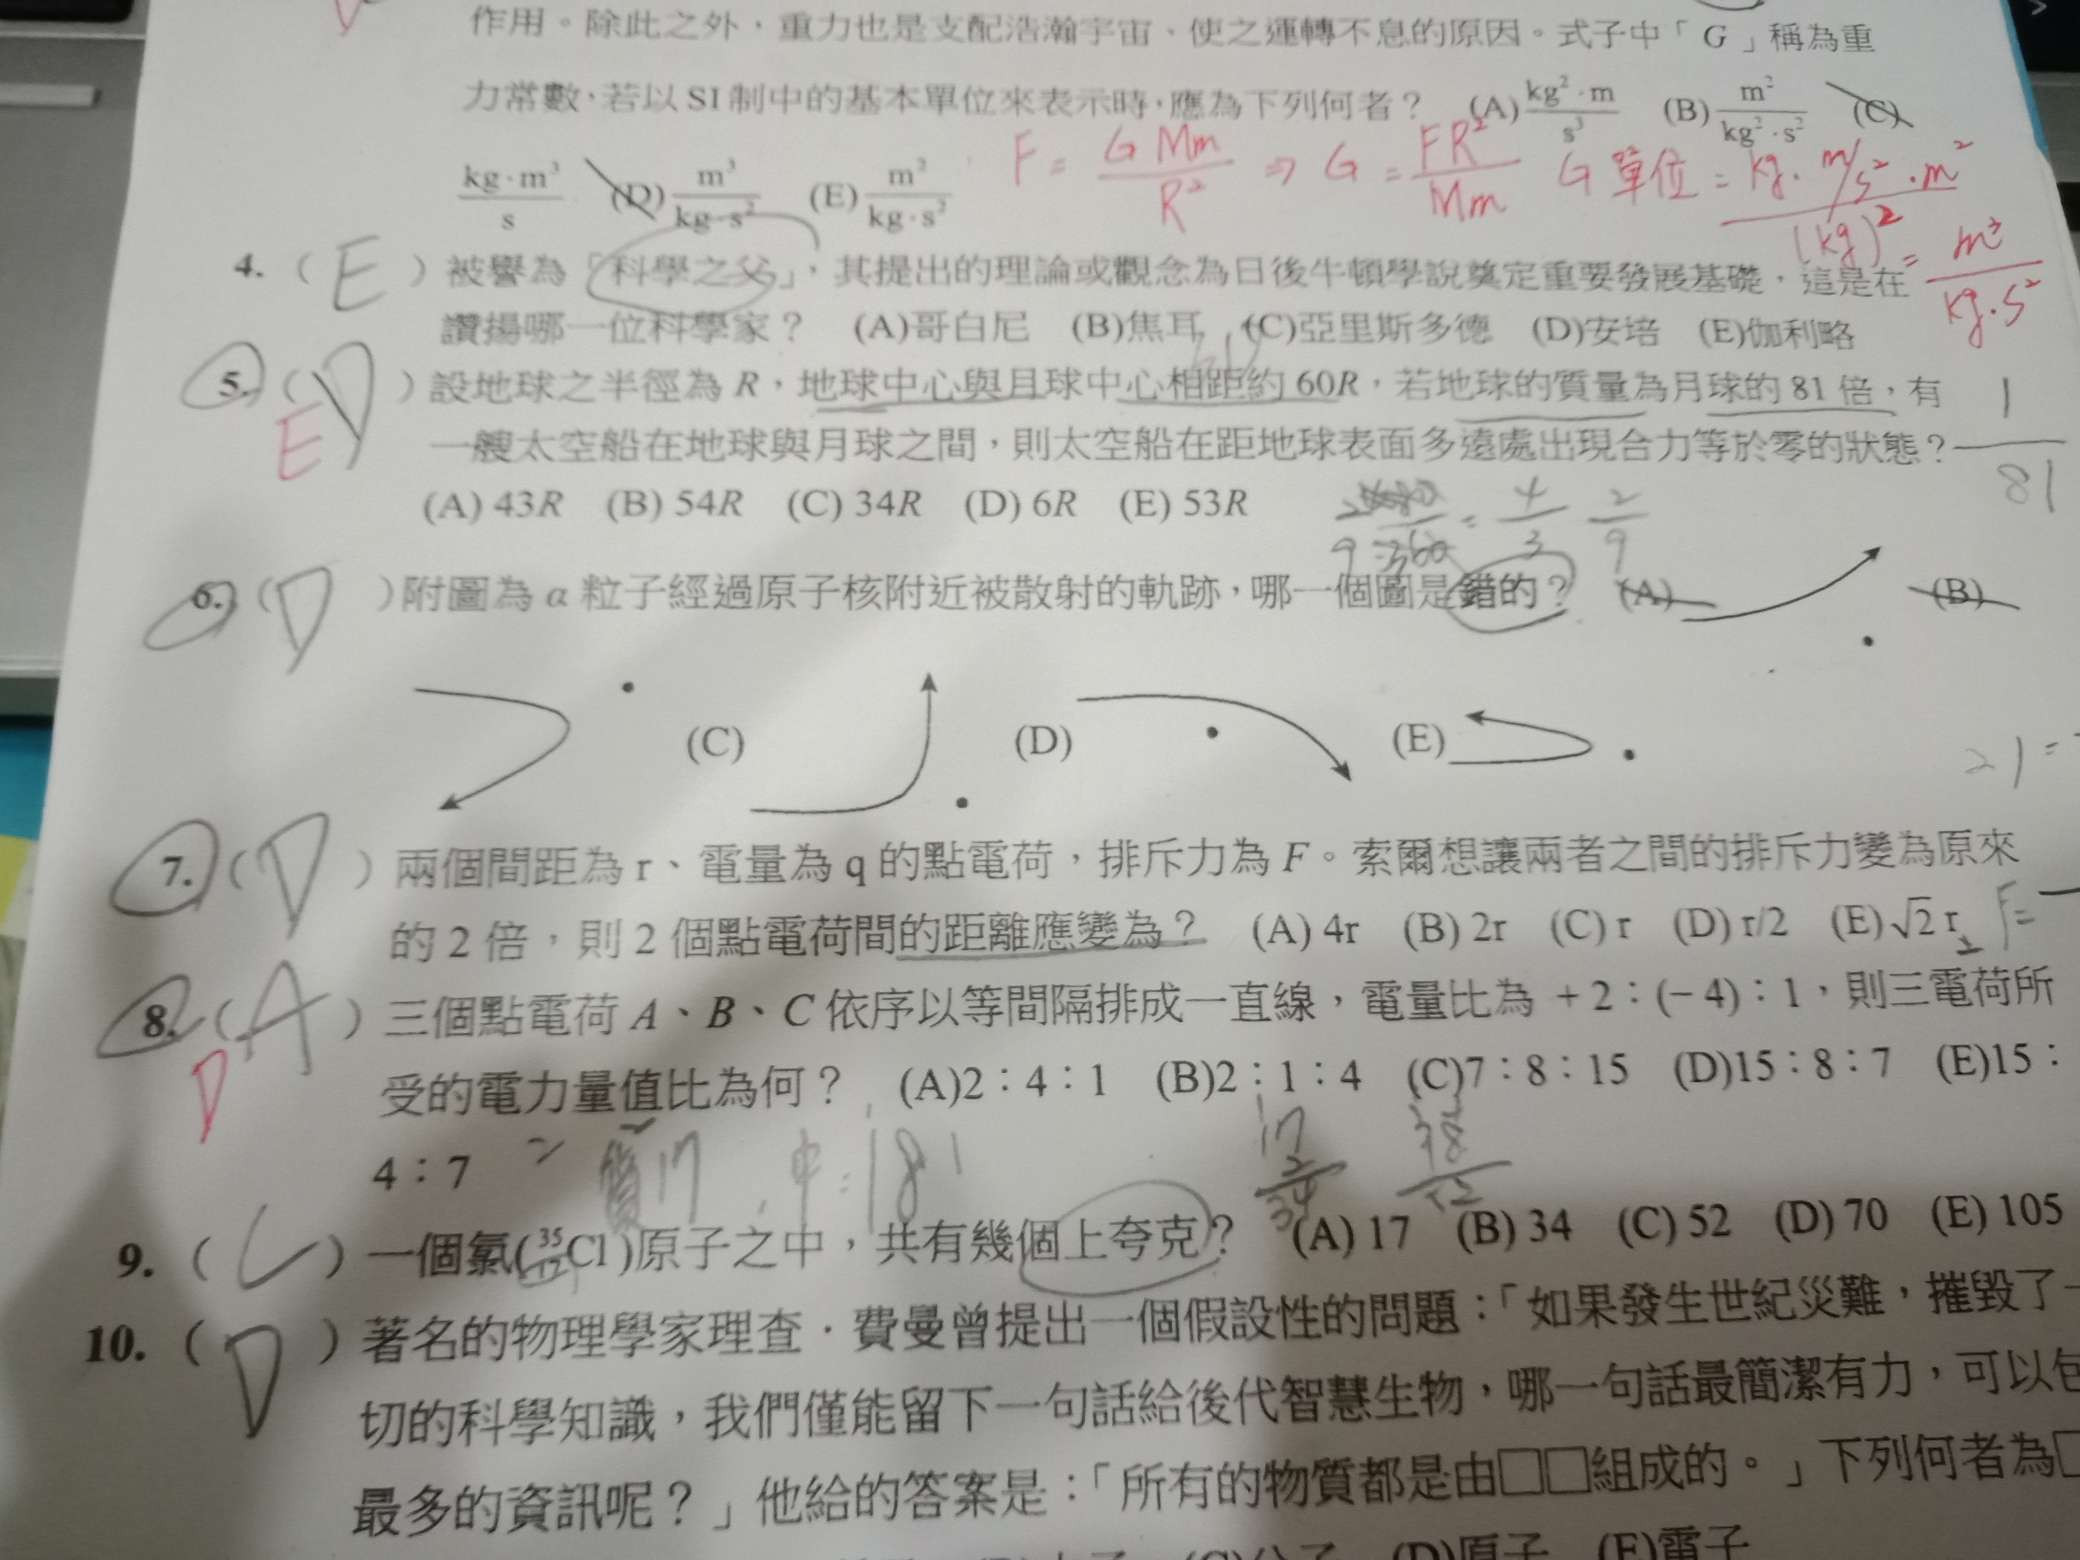 作用。除此之外，重力也是支配浩瀚宇宙、使之運轉不息的原因。式子中「G」稱為重
力常數，若以 SI 制中的基本單位來表示時，應為下列何者？ (A) kg²·m/s³ (B) m²/kg²·s² (C)
kg·m³/s (D) m³/kg·s² (E) m³/kg·s²
F = GMm/R² ⇒ G = FR²/Mm G單位 = kg·m/s²·m²/(kg)² = m³/kg·s²
4. ( E ) 被譽為「科學之父」，其提出的理論或觀念為日後牛頓學說奠定重要發展基礎，這是在
讚揚哪一位科學家？ (A)哥白尼 (B)焦耳 (C)亞里斯多德 (D)安培 (E)伽利略
5. ( D ) 設地球之半徑為 R，地球中心與月球中心相距約 60R，若地球的質量為月球的 81 倍，有
E
一艘太空船在地球與月球之間，則太空船在距地球表面多遠處出現合力等於零的狀態？
1/81
(A) 43R (B) 54R (C) 34R (D) 6R (E) 53R
= 4/3 2/9
6. ( D ) 附圖為 α 粒子經過原子核附近被散射的軌跡，哪一個圖是錯的？ (A) (B)
(C) (D) (E)
21=
7. ( D ) 兩個間距為 r、電量為 q 的點電荷，排斥力為 F。索爾想讓兩者之間的排斥力變為原來
的 2 倍，則 2 個點電荷間的距離應變為？ (A) 4r (B) 2r (C) r (D) r/2 (E) √2 r
F=
8. ( A ) 三個點電荷 A、B、C 依序以等間隔排成一直線，電量比為 +2：(−4)：1，則三電荷所
D
受的電力量值比為何？ (A)2：4：1 (B)2：1：4 (C)7：8：15 (D)15：8：7 (E)15：
4：7
17 中=18
17
2
34
9. ( C ) 一個氯(³⁵Cl)原子之中，共有幾個上夸克？ (A) 17 (B) 34 (C) 52 (D) 70 (E) 105
10. ( D ) 著名的物理學家理查．費曼曾提出一個假設性的問題：「如果發生世紀災難，摧毀了一
切的科學知識，我們僅能留下一句話給後代智慧生物，哪一句話最簡潔有力，可以包
最多的資訊呢？」他給的答案是：「所有的物質都是由□□組成的。」下列何者為□
(D)原子 (E)電子